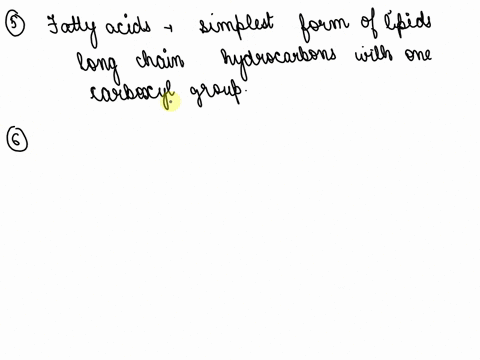 ⑤ Fatty acids → simplest form of lipids
long chain hydrocarbons with one
carboxyl group.
⑥